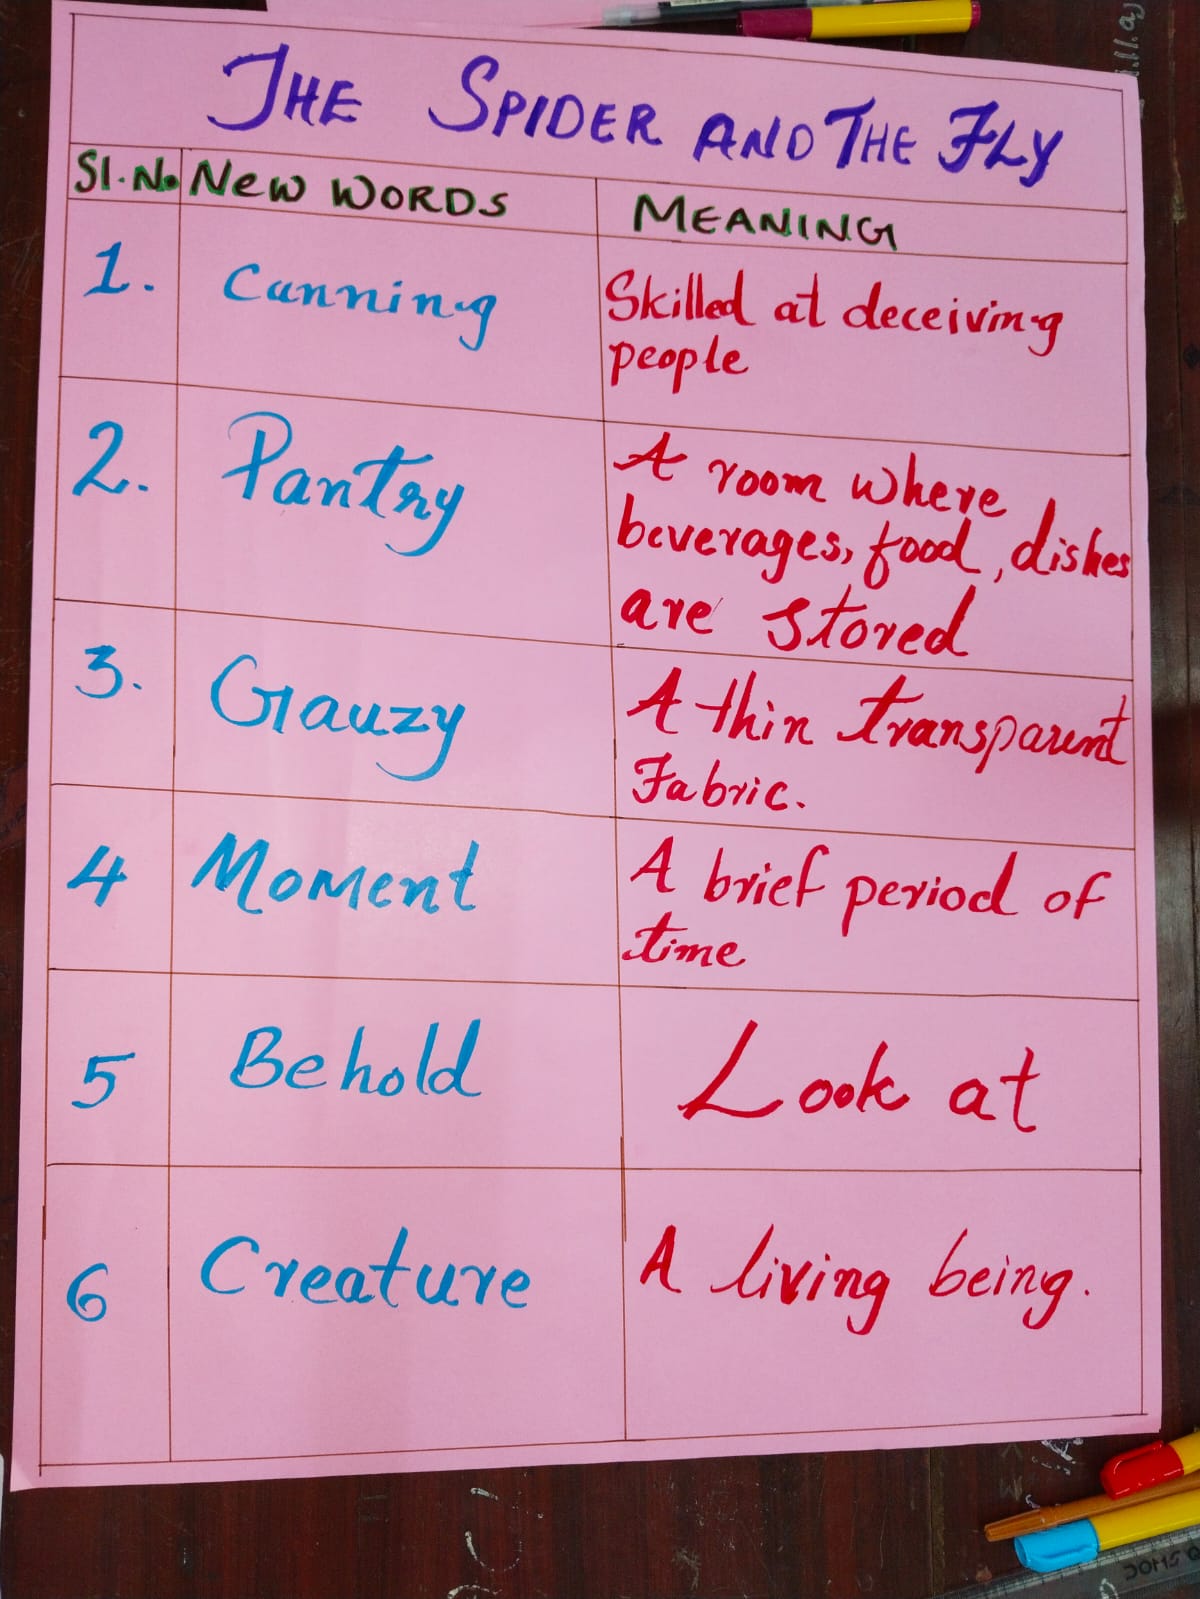 THE SPIDER AND THE FLY
Sl.No. NEW WORDS MEANING
1. Cunning Skilled at deceiving
people
2. Pantry A room where
beverages, food, dishes
are stored
3. Gauzy A thin transparent
Fabric.
4 Moment A brief period of
time
5 Behold Look at
6 Creature A living being.